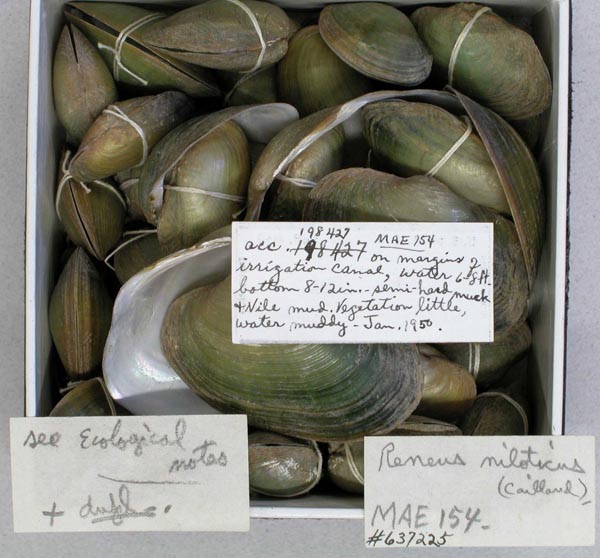 198427
acc. 198427 MAE 154
on margins of
irrigation canal, water 6-8 ft.
bottom 8-12 in. - semi-hard muck
+ Nile mud. Vegetation little,
water muddy - Jan. 1950.
see Ecological
notes
+ dupl.
Reneus niloticus
(Cailland)
MAE 154-
#637225